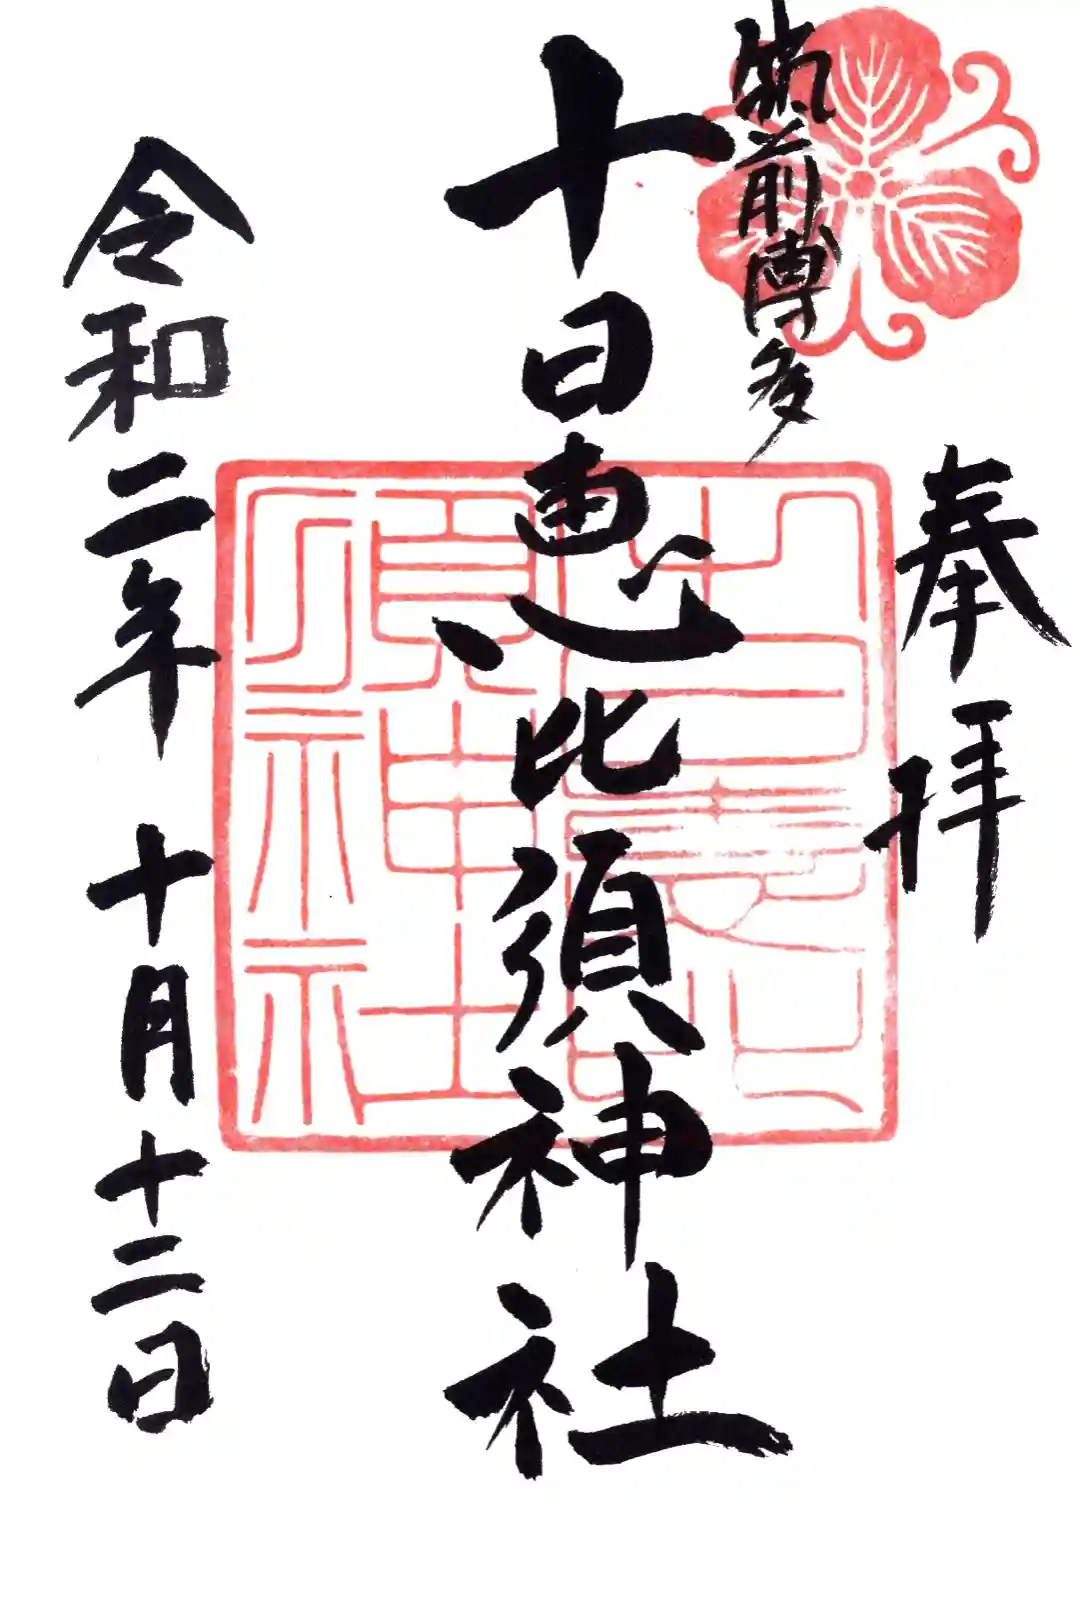 筑前博多
奉拝
十日恵比須神社
令和二年 十月十二日
十日恵比須神社